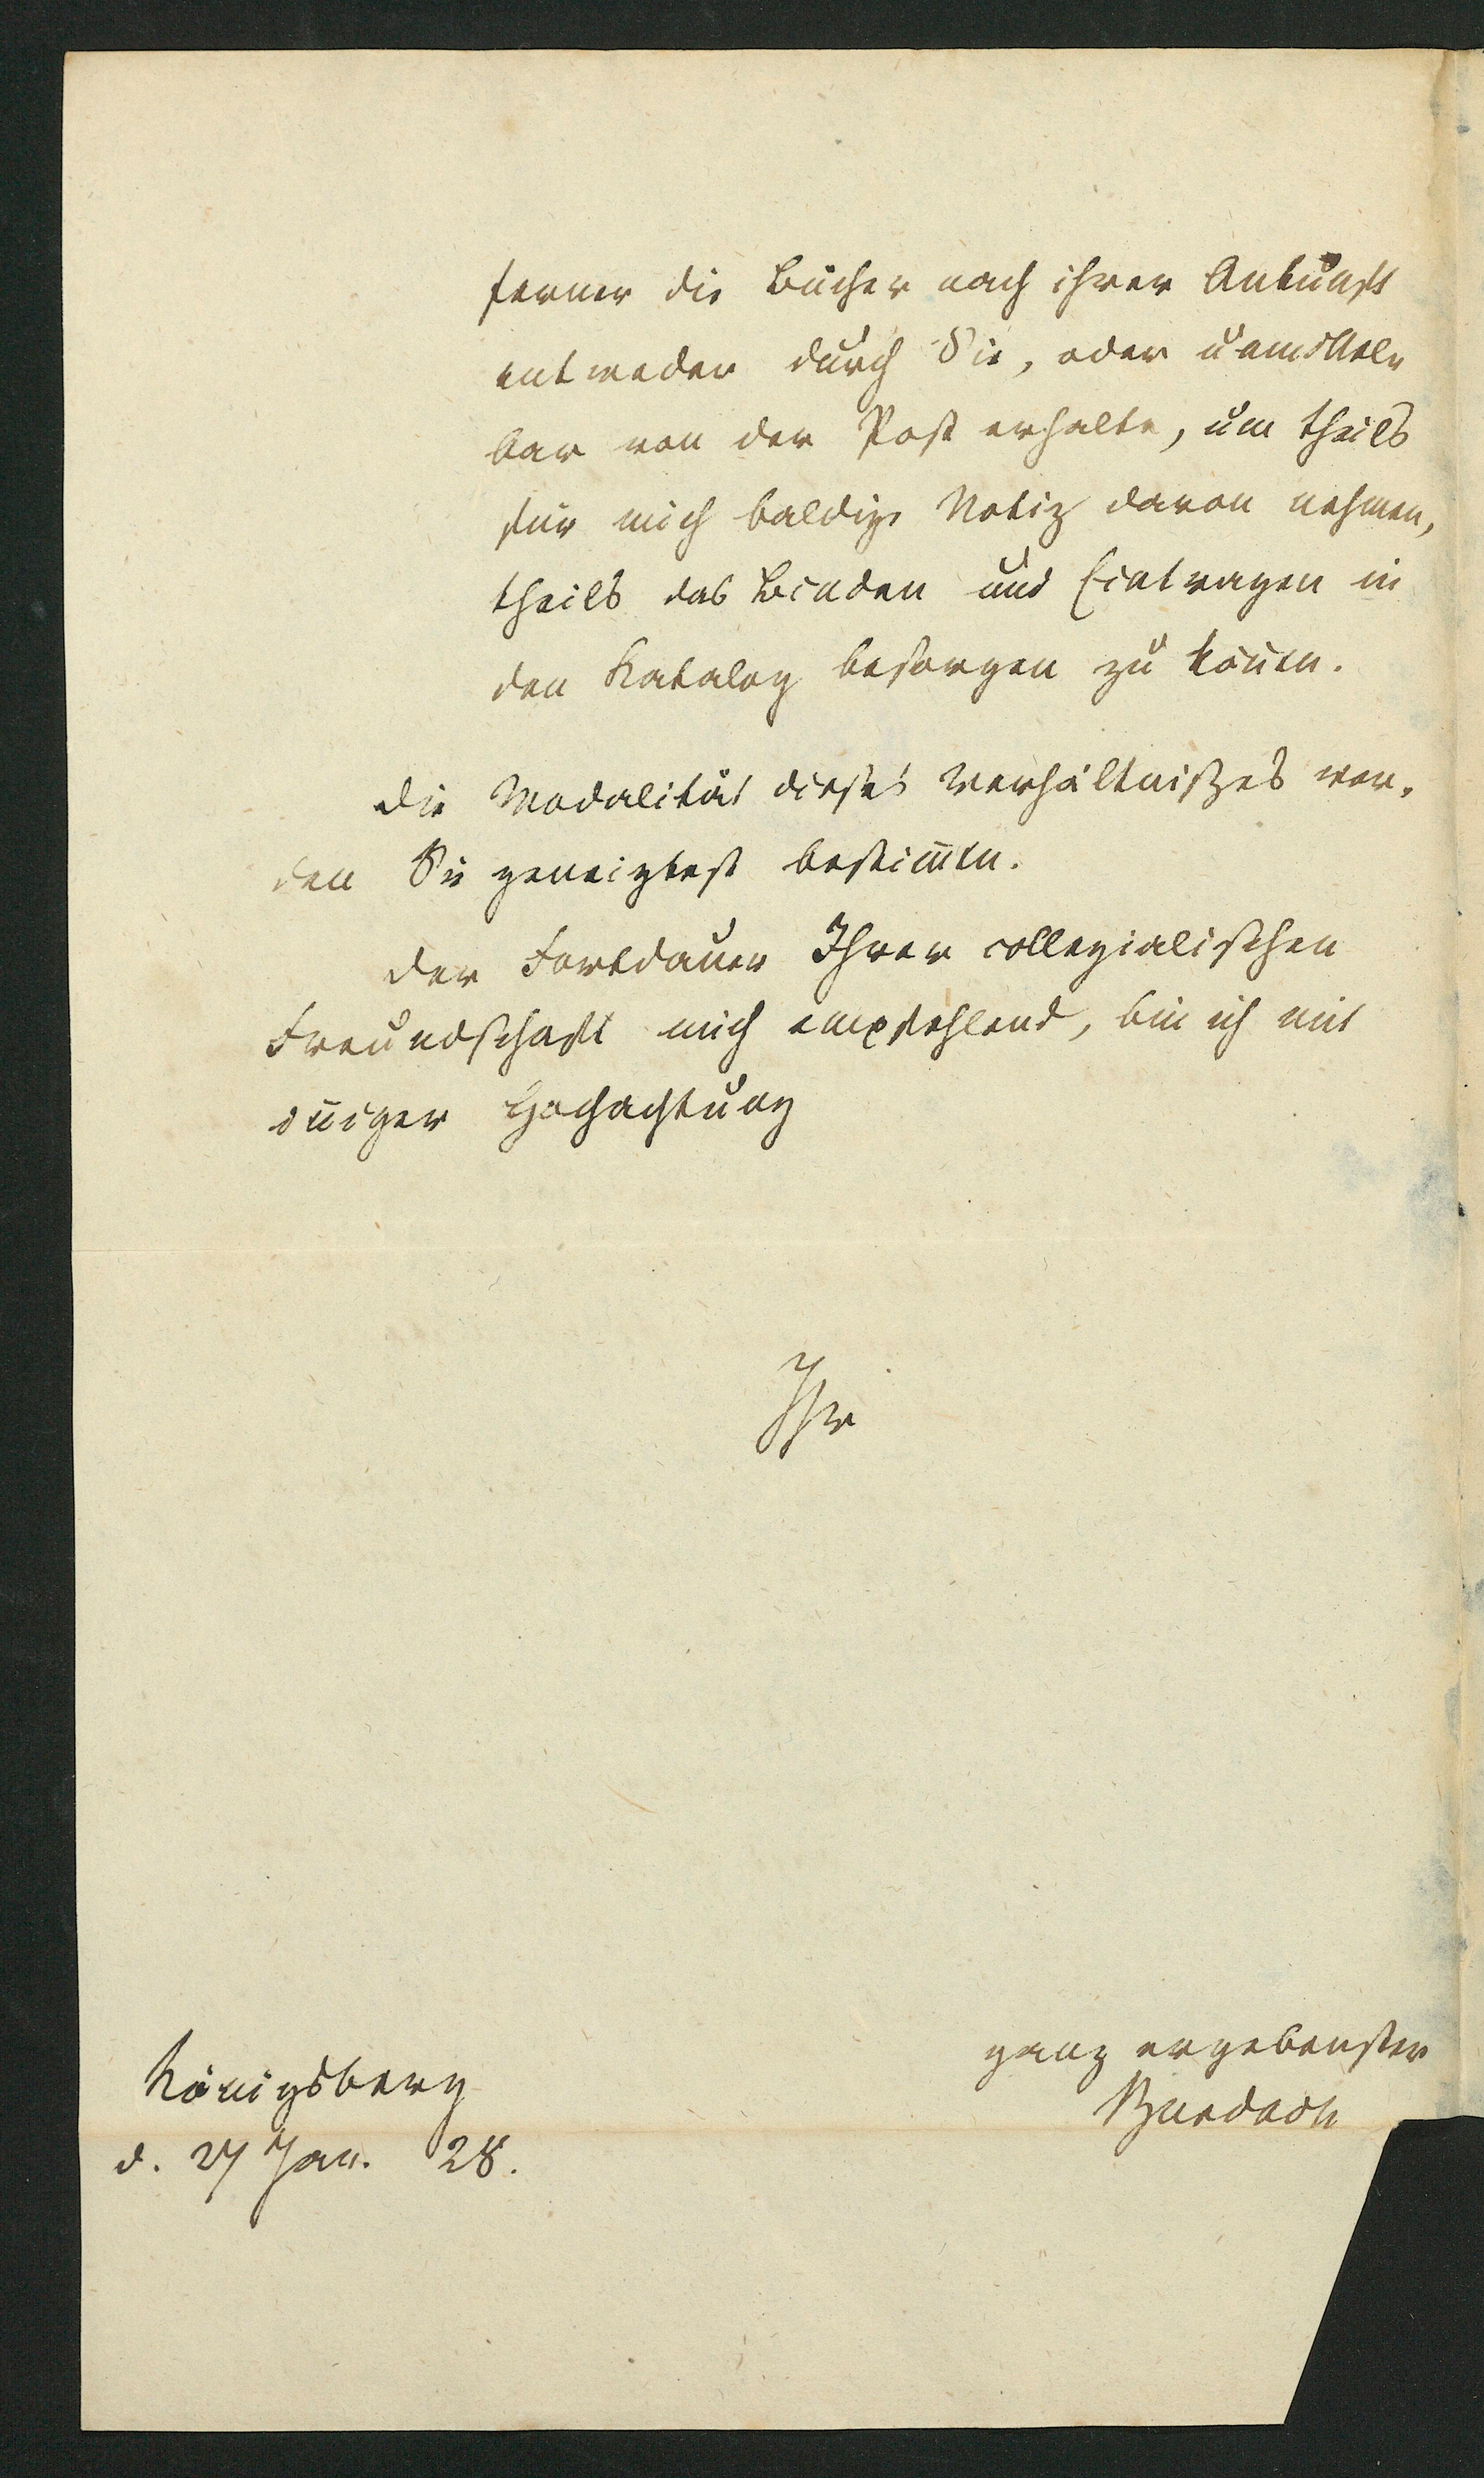 ferner die Bücher nach ihrer Ankunft
entweder durch Sie, oder unmittel
bar von der Post erhalte, um theils
für mich baldige Notiz davon nehmen,
theils das Binden und Eintragen in
den Katalog besorgen zu kön̄en.
Die Modalität dieses Verhältnißes wer-
den Sie geneigtest bestim̄en.
Der Fortdauer Ihrer collegialischen
Freundschaft mich empfehlend, bin ich mit
in̄iger Hochachtung
Ihr
ganz ergebenster
Burdach
Königsberg
d. 27 Jan. 28.